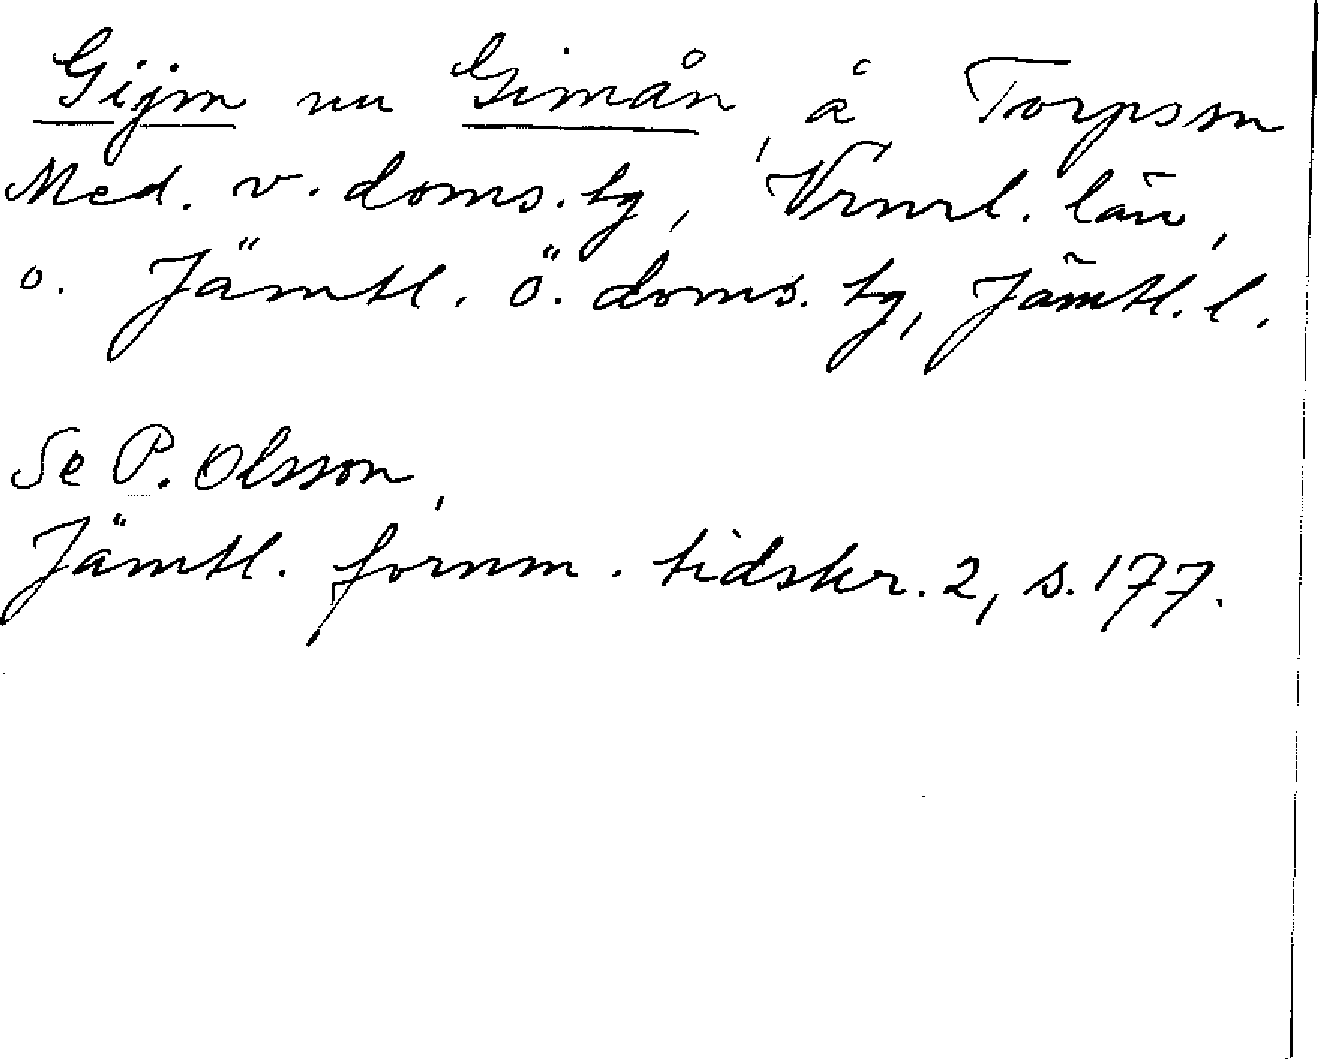 Gijm nu Gimån, å Torpssn
Med. v. doms. tg, Vrnrl. län,
o. Jämtl. ö. doms. tg, Jämtl. l.
Se P. Olsson,
Jämtl. fornm. tidskr. 2, s. 177.